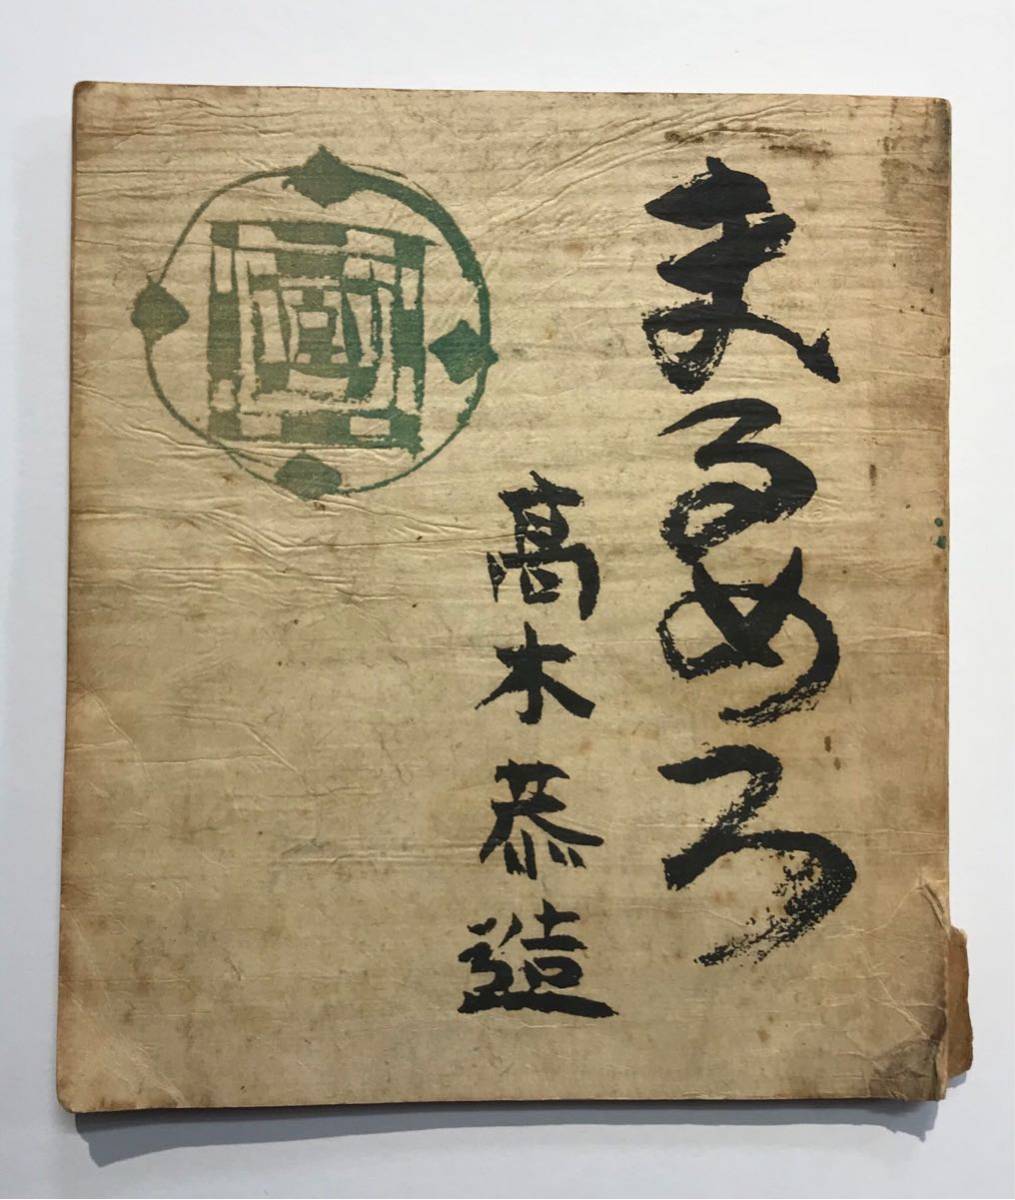 まるめろ
高木恭造